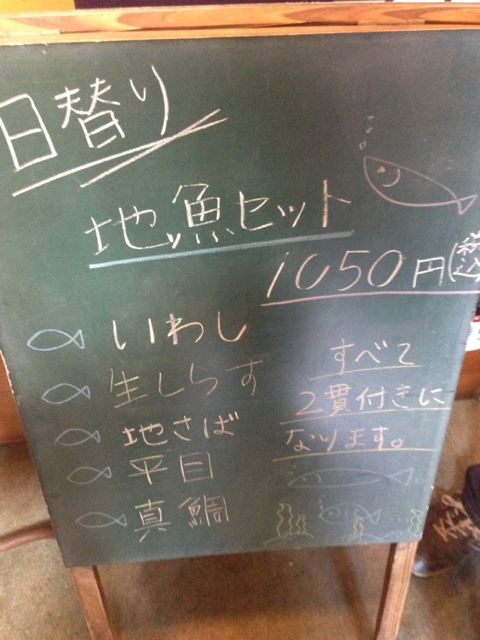 日替り
地魚セット
1050円(税込
いわし
生しらす
地さば
平目
真鯛
すべて
2貫付きに
なります。